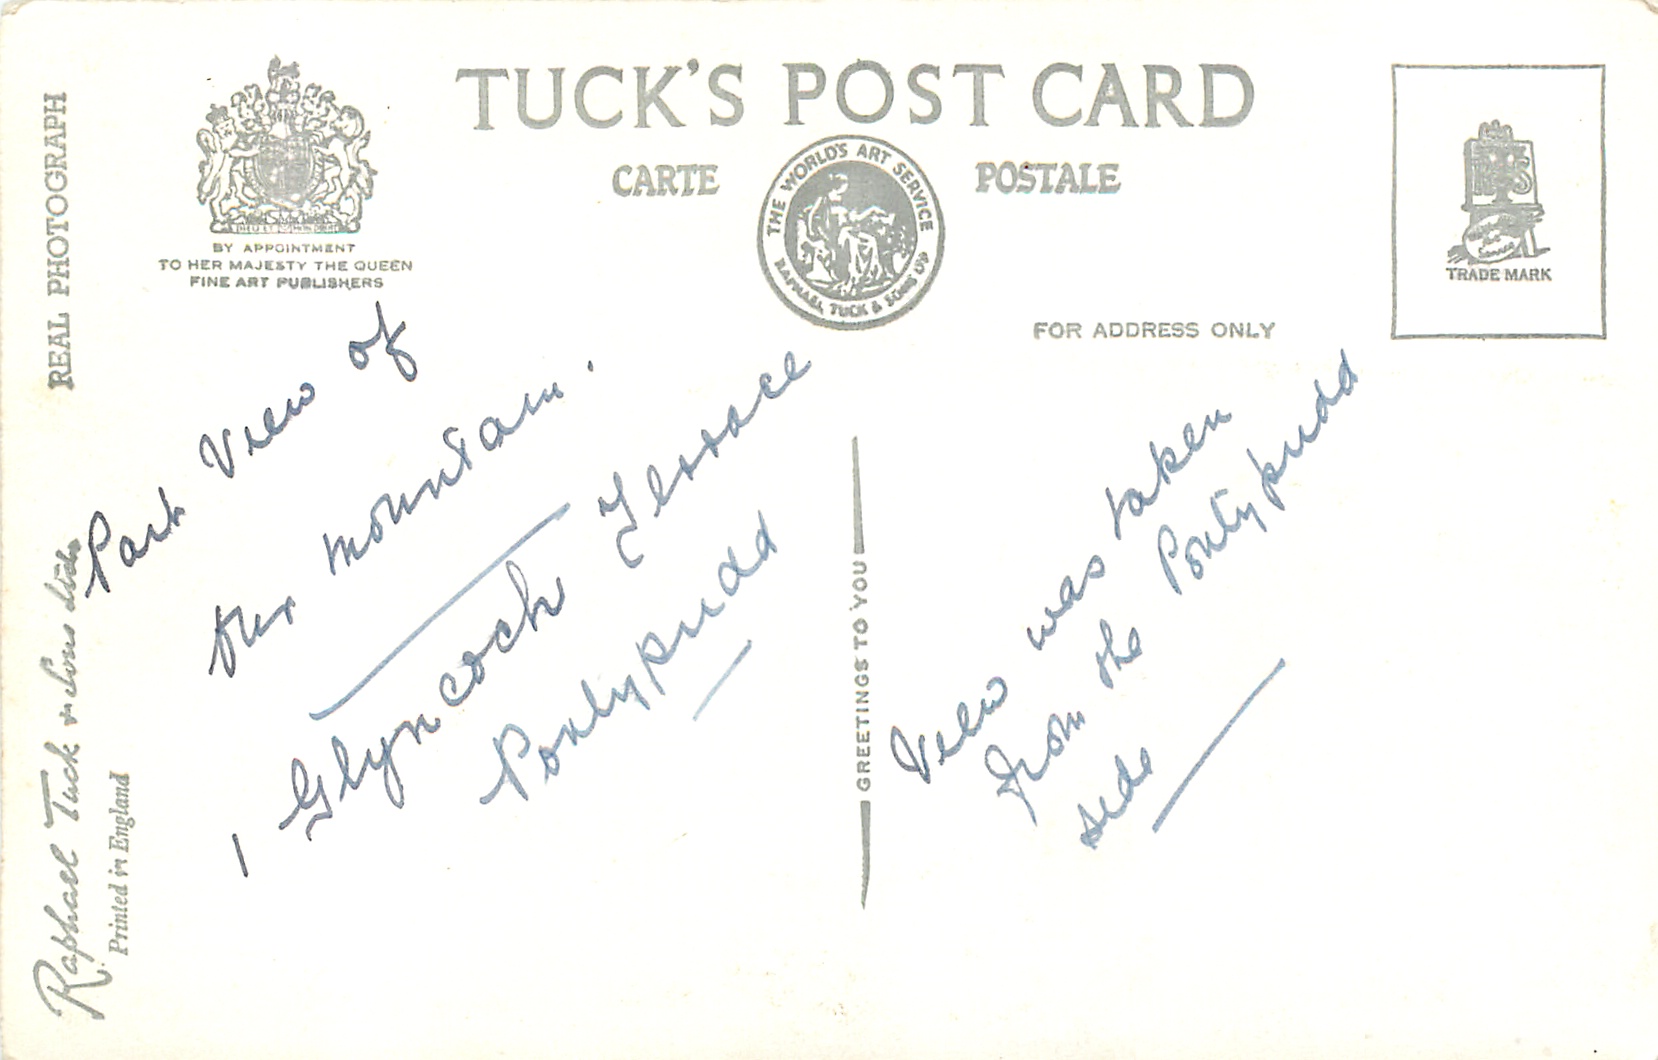 TUCK'S POST CARD
CARTE POSTALE
THE WORLD'S ART SERVICE
RAPHAEL TUCK & SONS LTD
BY APPOINTMENT
TO HER MAJESTY THE QUEEN
FINE ART PUBLISHERS
TRADE MARK
FOR ADDRESS ONLY
REAL PHOTOGRAPH
Raphael Tuck & Sons Ltd
Printed in England
Part View of
our mountain.
1 Glyncoch Terrace
Pontypridd
GREETINGS TO YOU
View was taken
from the Pontypridd
side